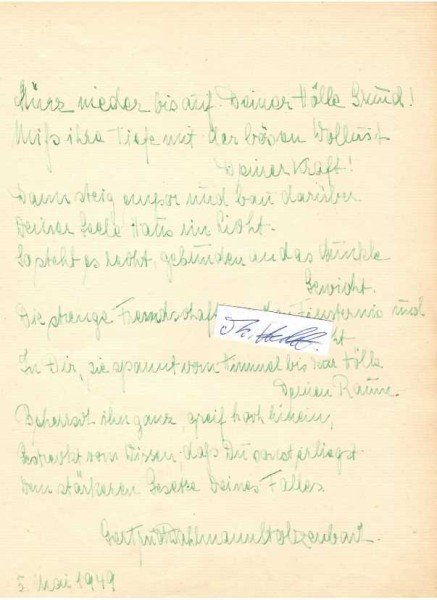 Stürz nieder bis auf Deiner Hölle Grund!
Miß ihre Tiefe mit der bösen Wollust
Deiner Kraft!
Dann steig empor und bau darüber
Deiner Seele Haus im Licht.
So steht es recht, gebunden an das dunkle
Gewicht.
Die strenge Fremdschaft Finsternis und
In Dir, sie spannt vom Himmel bis zur Hölle
Deinen Raum.
Beherrsch ihn ganz, greif hoch hinein,
vom Wissen, daß Du sonst erliegst
dem stärkeren Gesetze Deines Falles.
Gertrud Dahlmann Stolzenbach.
5. Mai 1949